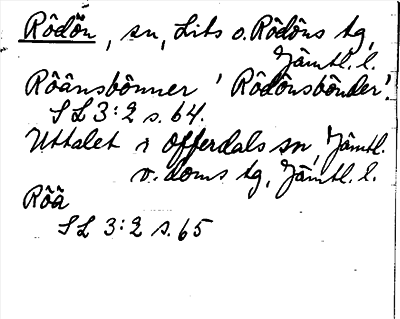 Rödön, sn, Lits o. Rödöns tg,
Jämtl. l.
Röånsbönner 'Rödönsbönder'.
SL 3:2 s. 64.
Uttalet i Offerdals sn, Jämtl.
v. doms tg, Jämtl. l.
Röä
SL 3:2 s. 65